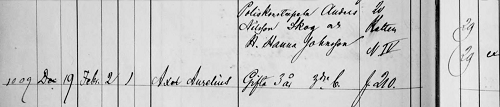 Poliskonstapeln Anders
Nilsson Skog o
H. Hanna Johnsson
Katten
N IV
29
1009 Dec 19 Febr. 2 1 Axel Aurelius Gifta 3 år 3dje b. f. 210. 29